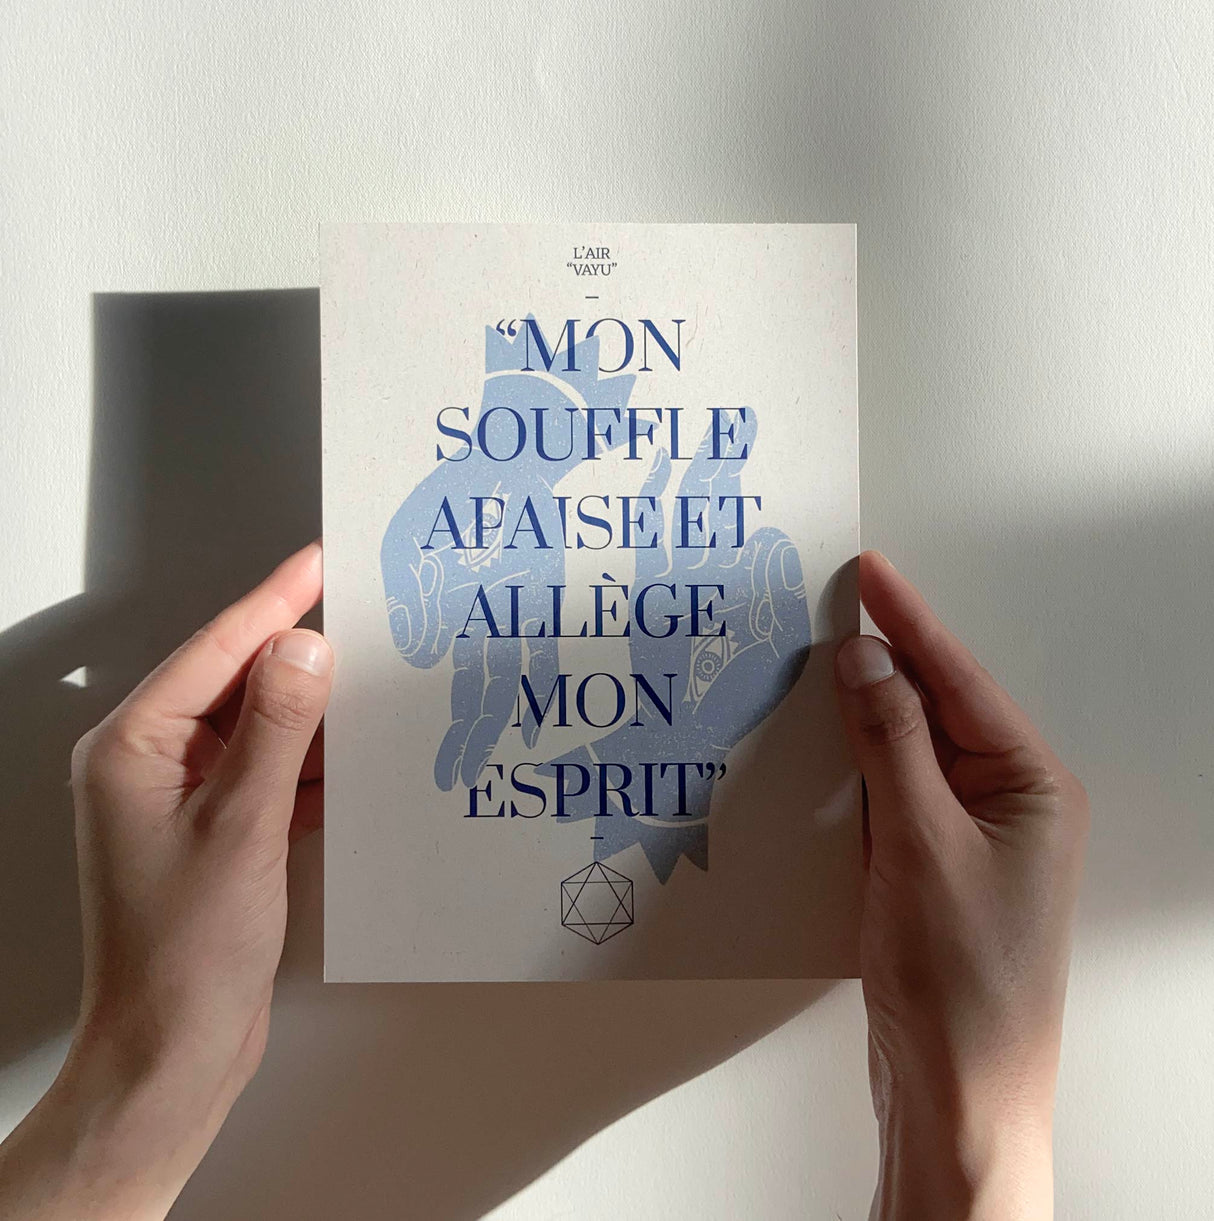 L’AIR
“VAYU”
“MON
SOUFFLE
APAISE ET
ALLÈGE
MON
ESPRIT”